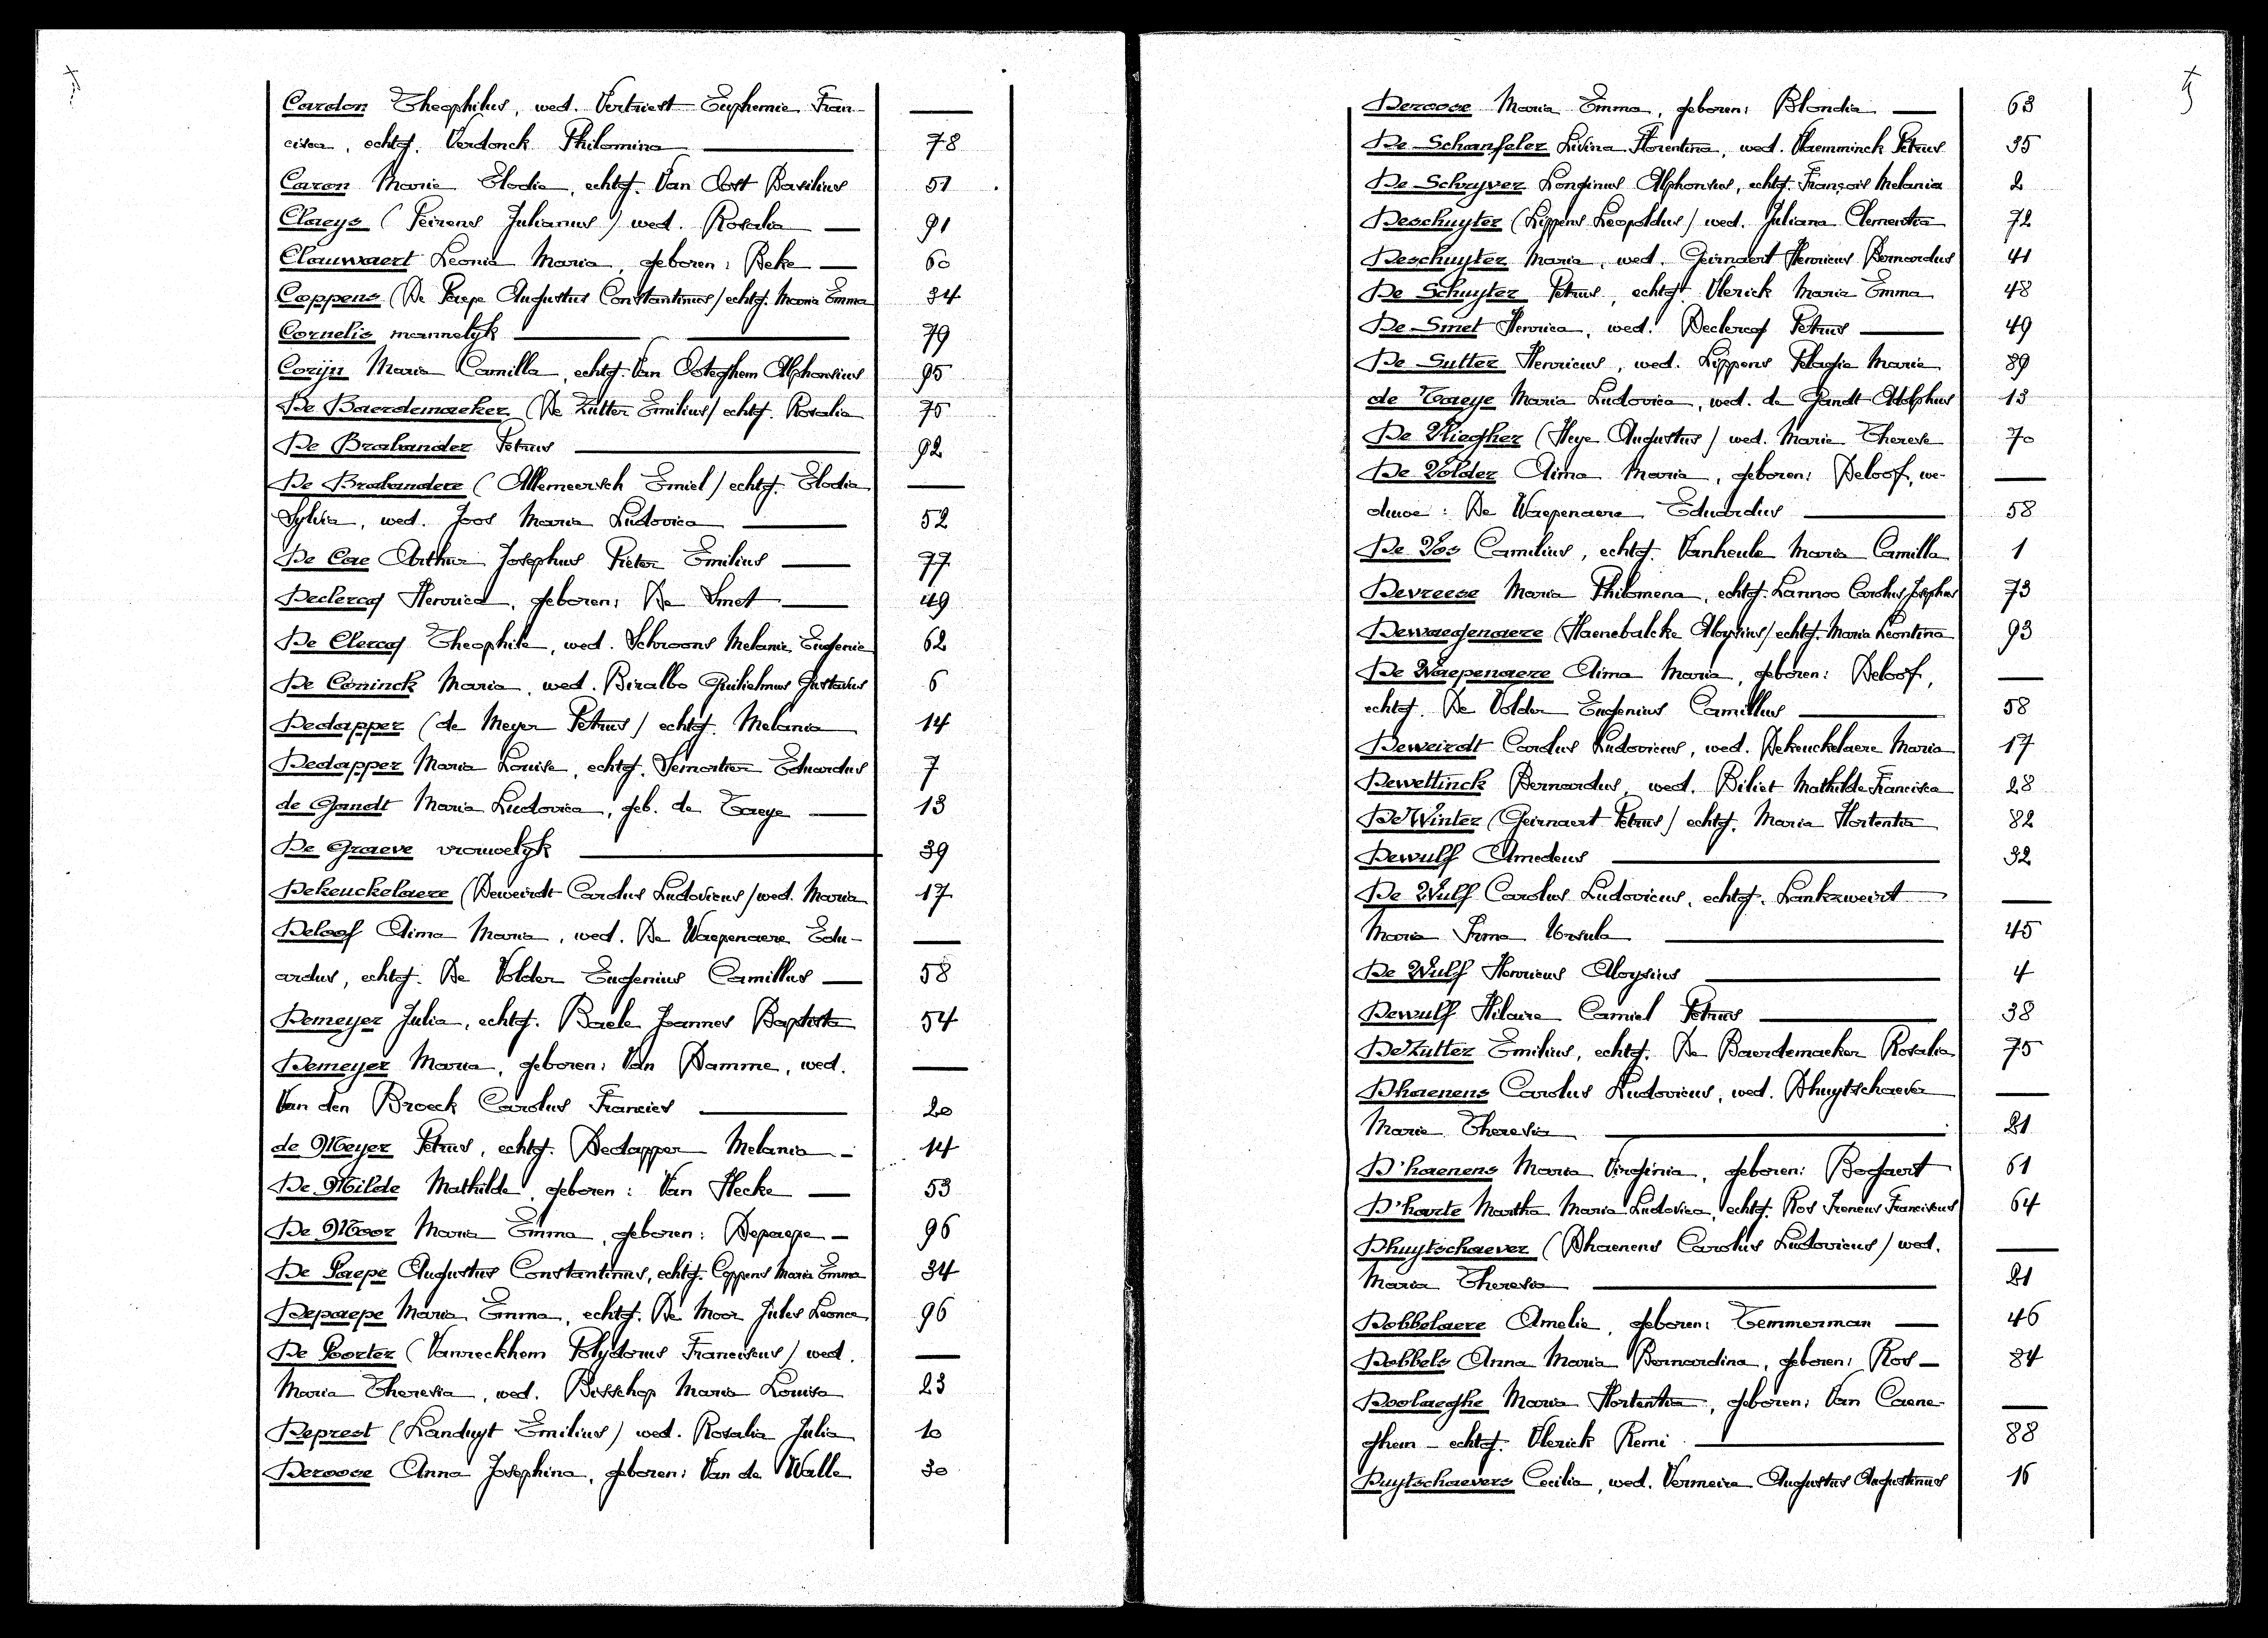 Cardon Theophilus, wed. Vertriest Euphemie Fran- —
cisca, echtg. Verdonck Philomina — 78
Caron Marie Elodia, echtg. Van Oost Basilius 51
Claeys (Peirens Julianus) wed. Rosalia — 91
Clauwaert Leonia Maria, geboren: Beke — 60
Coppens (De Paepe Augustus Constantinus) echtg. Maria Emma 34
Cornelis mannelyk — 79
Coryn Maria Camilla, echtg. Van Ooteghem Alphonsius 95
De Baerdemaeker (De Zutter Emilius) echtg. Rosalia 75
De Brabander Petrus — 92
De Brabandere (Allemeersch Emiel) echtg. Elodia —
Sylvia, wed. Joos Maria Ludovica — 52
De Cae Arthur Josephus Pieter Emilius — 77
Declercq Henrica, geboren: De Smet — 49
De Clercq Theophile, wed. Schroons Melanie Eugenie 62
De Coninck Maria, wed. Biralbo Guilielmus Gustavus 6
Dedapper (de Meyer Petrus) echtg. Melania 14
Dedapper Maria Louise, echtg. Semortier Eduardus 7
de Gandt Maria Ludovica, geb. de Taeye — 13
De Graeve vrouwelyk — 39
Dekeuckelaere (Deweirdt Carolus Ludovicus) wed. Maria 17
Deloof Aima Maria, wed. De Waepenaere Edu- —
ardus, echtg. De Volder Eugenius Camillus — 58
Demeyer Julia, echtg. Baele Joannes Baptista 54
Demeyer Maria, geboren: Van Damme, wed. —
Van den Broeck Carolus Francies — 20
de Meyer Petrus, echtg. Dedapper Melania - 14
De Milde Mathilde, geboren: Van Hecke — 53
De Moor Maria Emma, geboren: Depaepe — 96
De Paepe Augustus Constantinus, echtg. Coppens Maria Emma 34
Depaepe Maria Emma, echtg. De Moor Jules Leonce 96
De Poorter (Vanreckhem Polydorus Franciscus) wed. —
Maria Theresia, wed. Bisschop Maria Louisa 23
Deprest (Landuyt Emilius) wed. Rosalia Julia 10
Deroose Anna Josephina, geboren: Van de Walle 30
Deroose Maria Emma, geboren: Blondia — 63
De Schampheler Livina Florentina, wed. Vlaemminck Petrus 35
De Schryver Longinus Alphonsus, echtg. François Melania 2
Deschuyter (Lippens Leopoldus) wed. Juliana Clementia 72
Deschuyter Maria, wed. Geirnaert Henricus Bernardus 41
De Schuyter Petrus, echtg. Vlerick Maria Emma 48
De Smet Henrica, wed. Declercq Petrus — 49
De Sutter Henricus, wed. Lippens Pelagie Marie 89
de Taeye Maria Ludovica, wed. de Gandt Adolphus 13
De Vliegher (Heye Augustus) wed. Marie Therese 70
De Volder Aima Maria, geboren: Deloof, we- —
duwe: De Waepenaere Eduardus — 58
De Vos Camilius, echtg. Vanheule Maria Camilla 1
Devreese Maria Philomena, echtg. Lannoo Carolus Josephus 73
Dewaegenaere (Haenebalcke Aloysius) echtg. Maria Leontina 93
De Waepenaere Aima Maria, geboren: Deloof, —
echtg. De Volder Eugenius Camillus — 58
Deweirdt Carolus Ludovicus, wed. Dekeuckelaere Maria 17
Dewettinck Bernardus, wed. Biliet Mathilde Francisca 28
De Winter (Geirnaert Petrus) echtg. Maria Hortentia 82
Dewulf Amedeus — 32
De Wulf Carolus Ludovicus, echtg. Lankzweirt —
Maria Irma Ursula — 45
De Wulf Henricus Aloysius — 4
Dewulf Hilaire Camiel Petrus — 38
De Zutter Emilius, echtg. De Baerdemaeker Rosalia 75
Dhaenens Carolus Ludovicus, wed. Dhuytschaever —
Maria Theresia — 21
D'haenens Maria Virginia, geboren: Bogaert 61
D'harte Martha Maria Ludovica, echtg. Ros Ireneus Franciscus 64
Dhuytschaever (Dhaenens Carolus Ludovicus) wed. —
Maria Theresia — 21
Dobbelaere Amelie, geboren: Temmerman — 46
Dobbels Anna Maria Bernardina, geboren: Ros — 84
Doolaeghe Maria Hortentia, geboren: Van Caene- —
ghem - echtg. Vlerick Remi — 88
Duytschaevers Cecilia, wed. Vermeire Augustus Augustinus 16